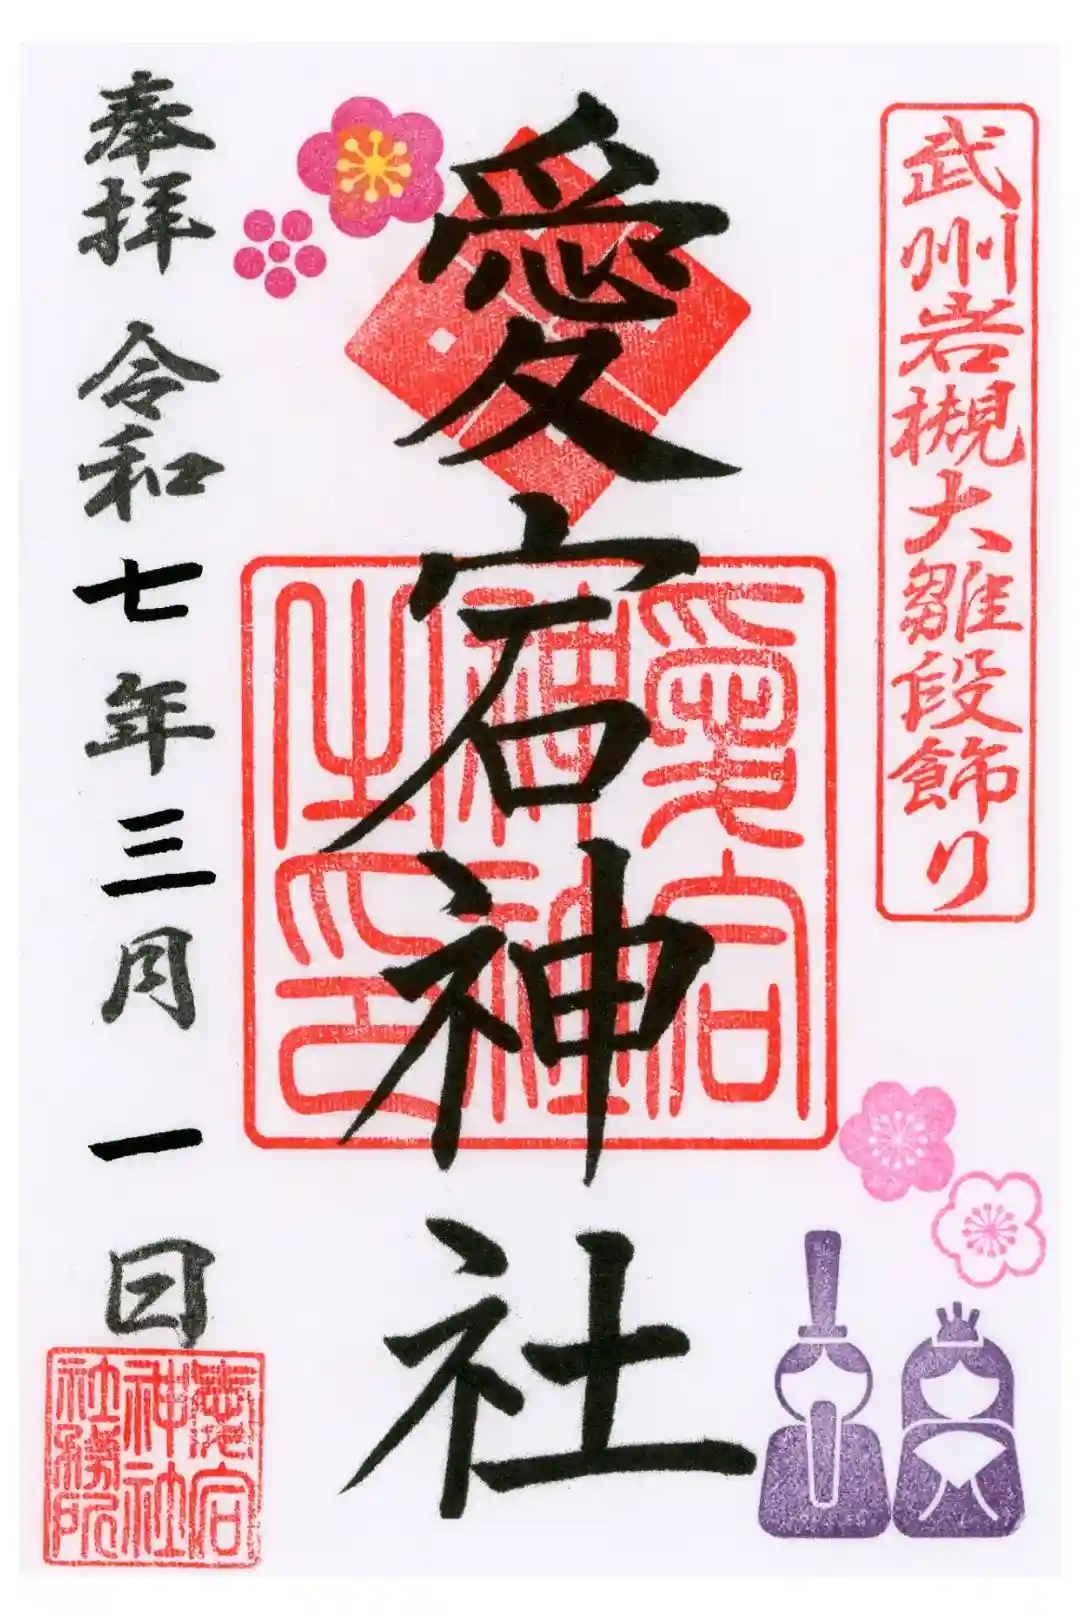 武州岩槻大雛段飾り
愛宕神社
愛宕
神社
之印
奉拝 令和七年三月一日
愛宕
神社
社務所